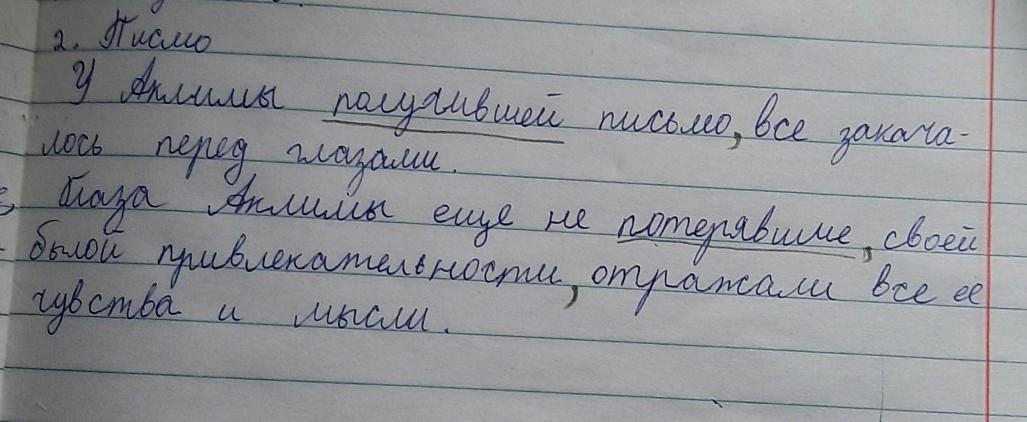 2. Писмо
У Аклимы получившей письмо, все закача-
лось перед глазами.
Глаза Аклимы еще не потерявшие, своей
былой привлекательности, отражали все ее
чувства и мысли.